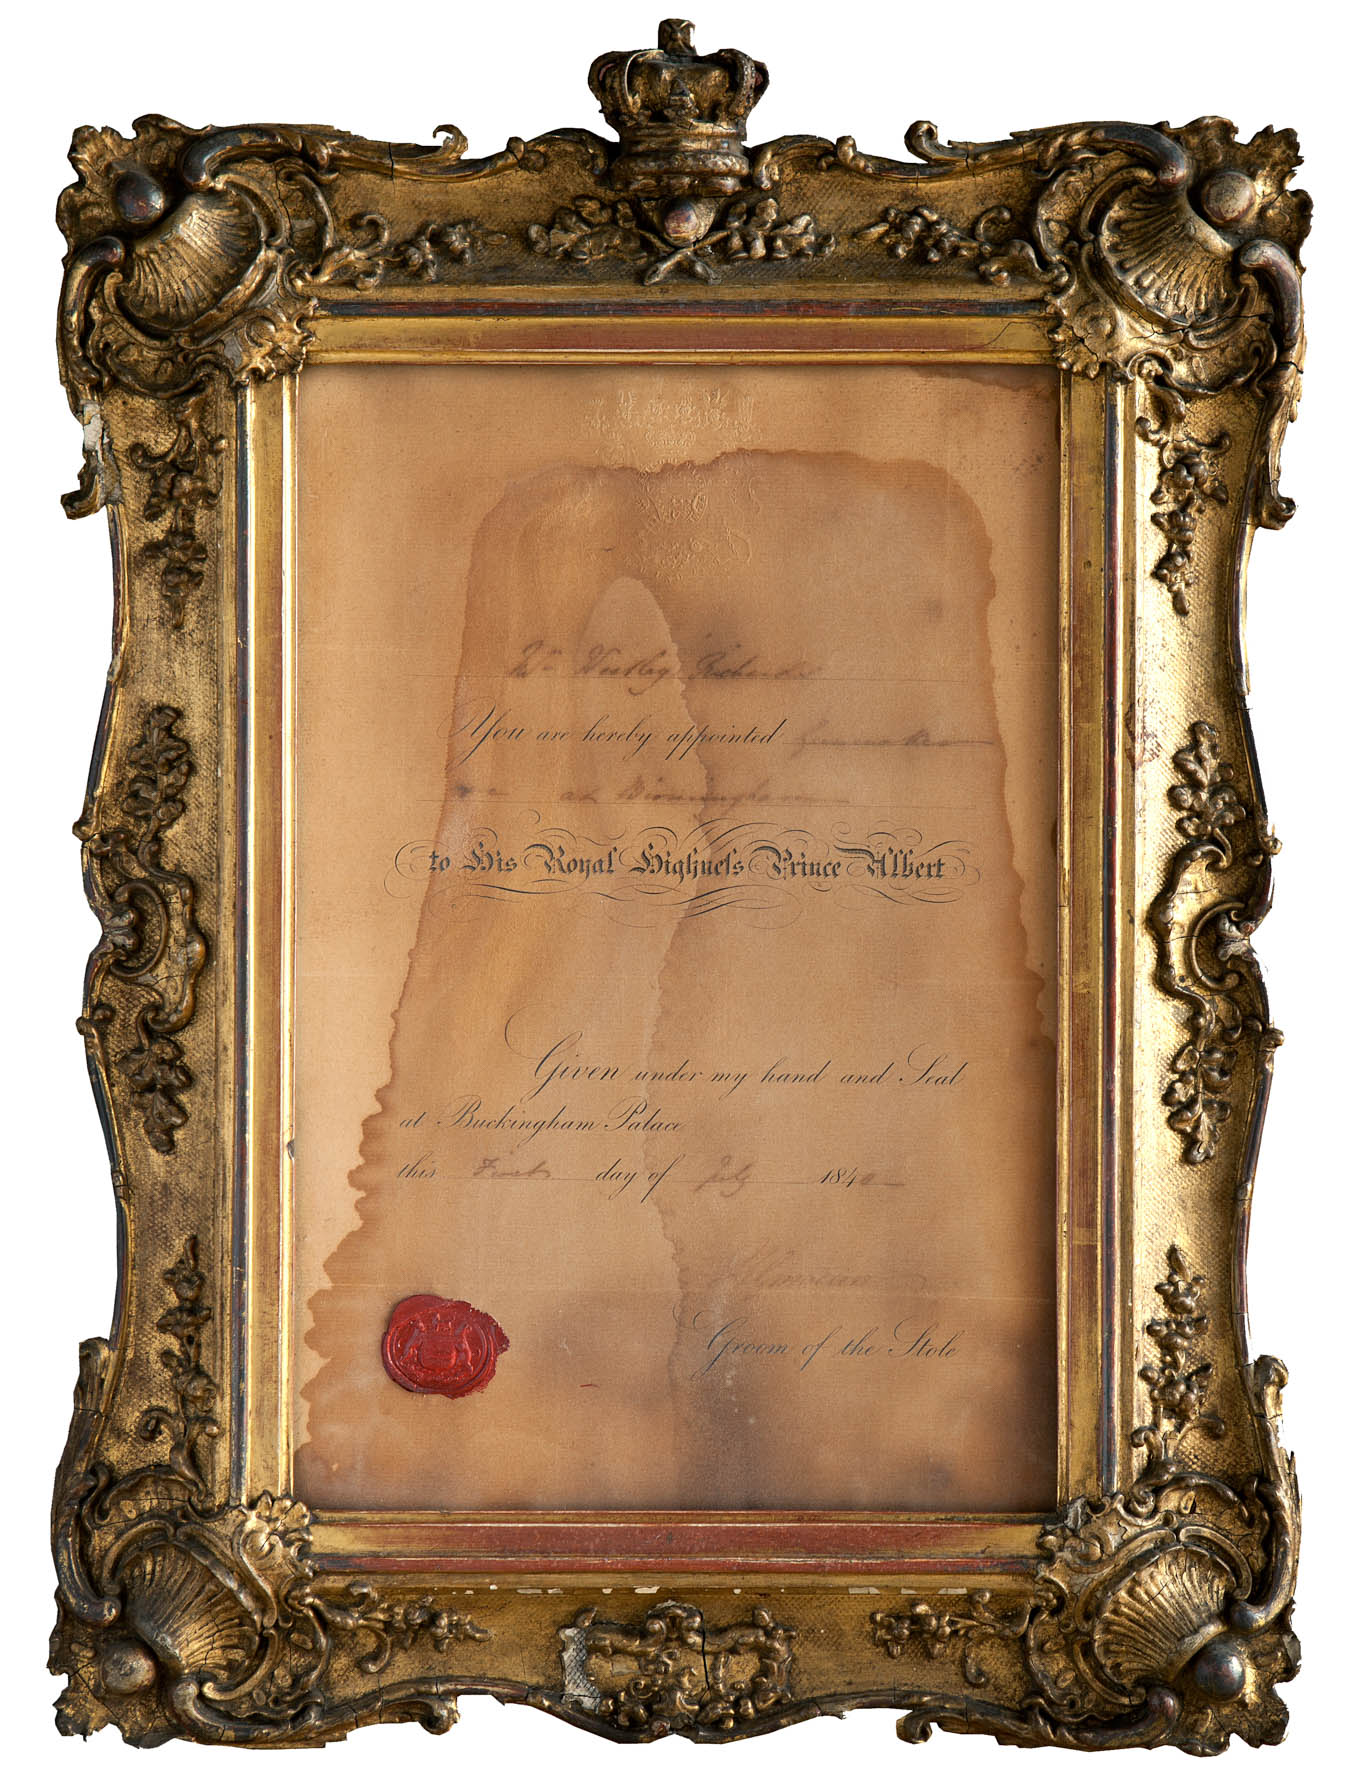 Wm Westley Richards
You are hereby appointed
at Birmingham
to His Royal Highness Prince Albert
Given under my hand and Seal
at Buckingham Palace
this First day of July 1840
Groom of the Stole